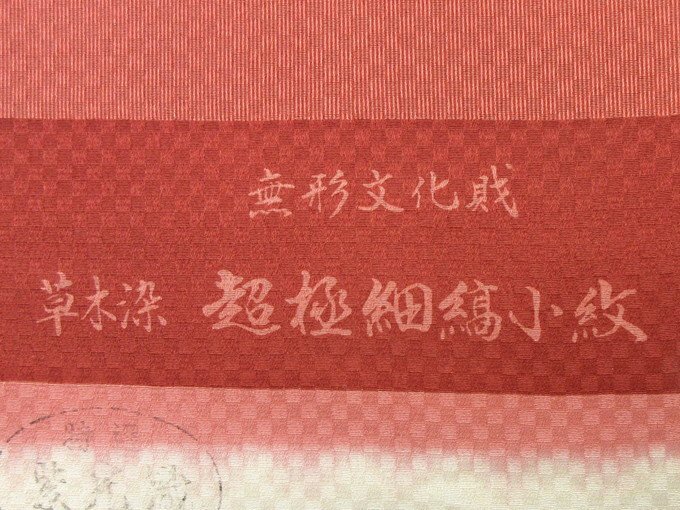 無形文化財
草木染 超極細縞小紋